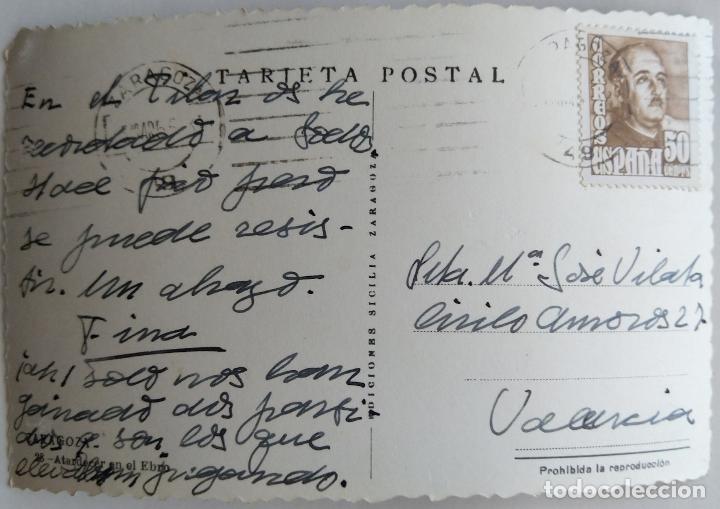 TARJETA POSTAL
ZARAGOZA
En el Pilar os he
recordado a todos
Hace frío pero
se puede resis-
tir. Un abrazo.
Fina
¡ah! solo nos han
ganado dos parti-
dos y son los que
llevan jugando.
ZARAGOZA
25 - Atardecer en el Ebro
EDICIONES SICILIA ZARAGOZA
CORREOS
ESPAÑA 50
CENTS
Srta. Mª José Vilata
Cirilo Amoros 27.
Valencia
Prohibida la reproducción
todocoleccion